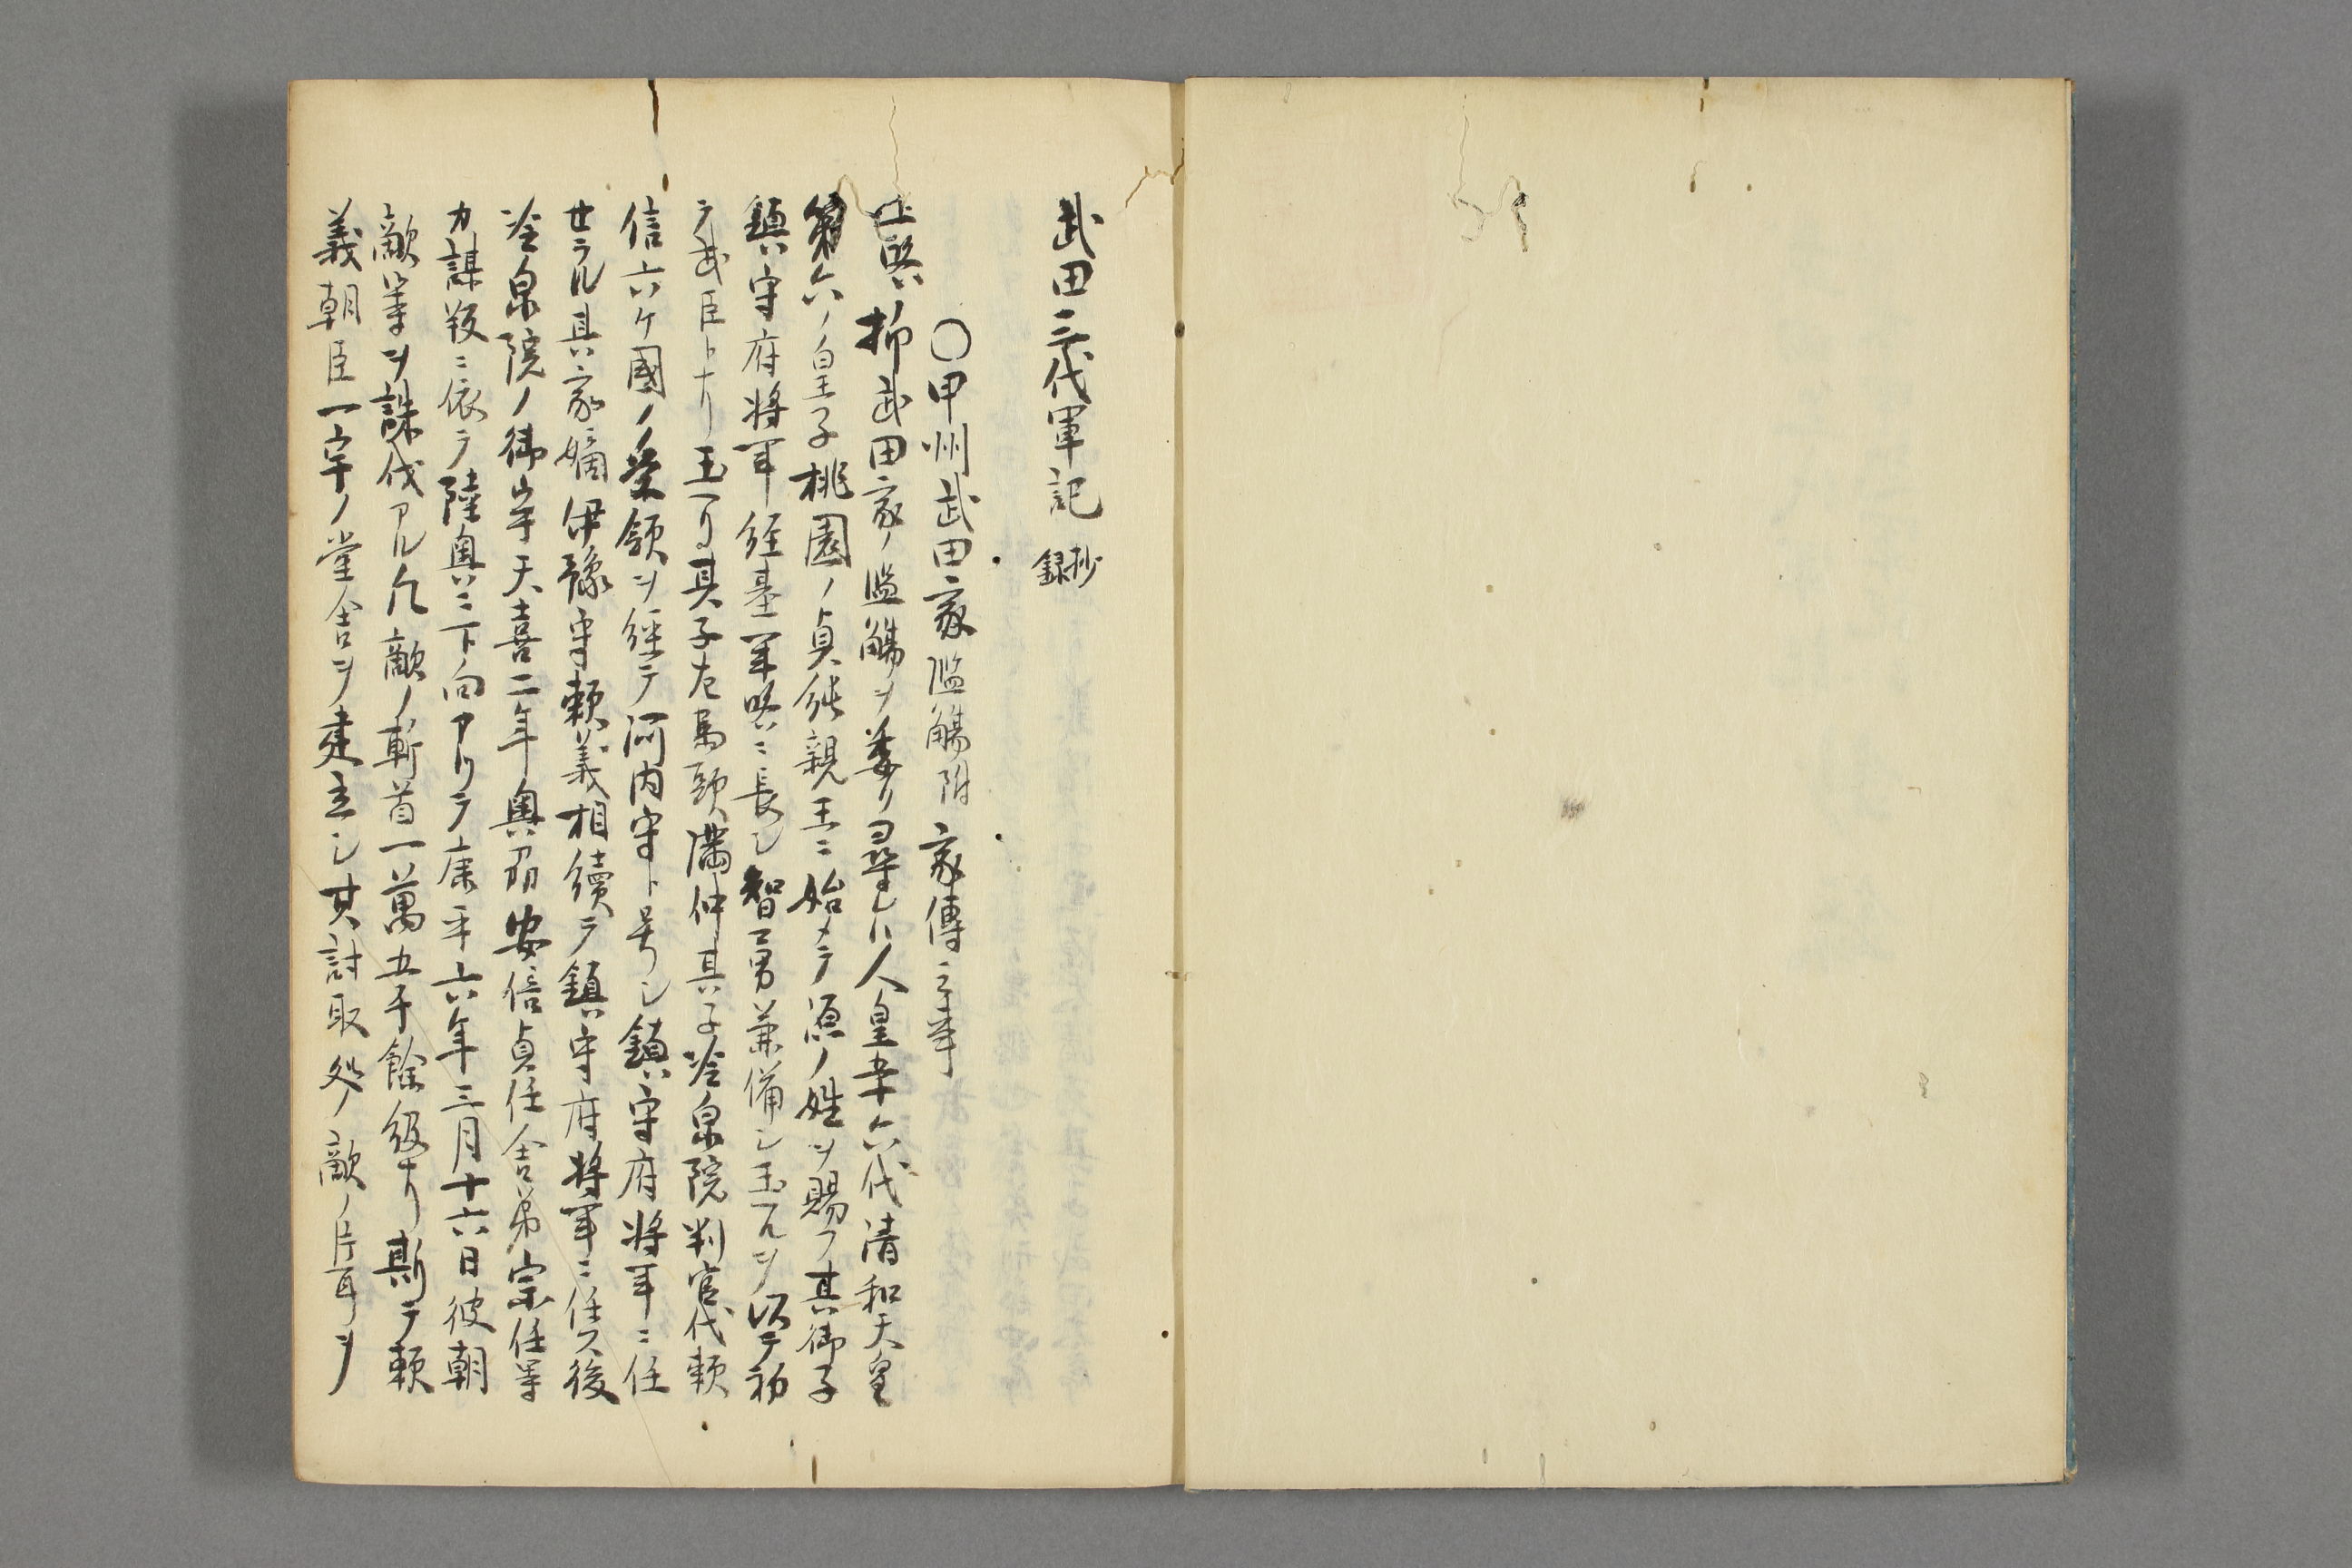 武田三代軍記 抄録
〇甲州武田家濫觴附家傳之事
上略抑武田家ノ濫觴ヲ委ク尋レハ人皇五十六代清和天皇
第六ノ皇子桃園ノ貞純親王ニ始メテ源ノ姓ヲ賜フ其御子
鎮守府将軍経基軍略ニ長シ智勇兼備シ玉フヲ以テ初
テ武臣トナリ玉ヘリ其子左馬頭満仲其子冷泉院判官代頼
信六ケ國ノ受領ヲ経テ河内守ト号シ鎮守府将軍ニ任
セラル其家嫡伊豫守頼義相続テ鎮守府将軍ニ任ス後
冷泉院ノ御宇天喜二年奥刕安倍貞任舎弟宗任等
カ謀叛ニ依テ陸奥ニ下向アリテ康平六年三月十六日彼朝
敵等ヲ誅伐アル凡敵ノ斬首一萬五千餘級ナリ斯テ頼
義朝臣一宇ノ堂舎ヲ建立シ其討取処ノ敵ノ片耳ヲ